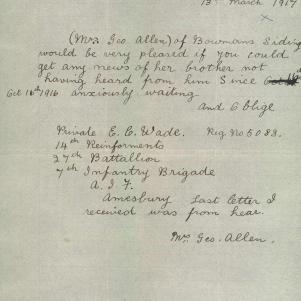 13th March 1917
(Mrs Geo. Allen) of Bowmans Siding
would be very pleased if you could
get any news of her brother not
having heard from him Since
Oct 16th 1916 anxiously waiting
and Oblige
Private E. C. Wade. Reg. No 5083.
14th Reinforments
27th Battallion
7th Infantry Brigade
A. I. F.
Amesbury Last letter I
received was from hear.
Mrs Geo. Allen.